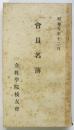 昭和九年十二月
會員名簿
立教學院校友會